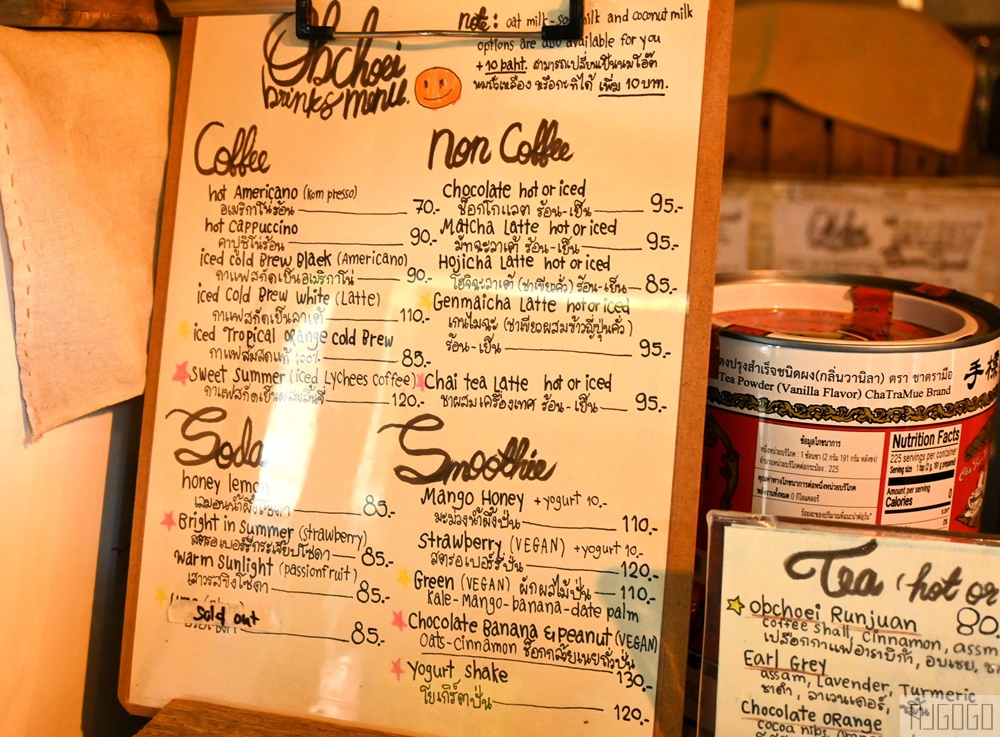 Obchoei
Drinks menu.
note: oat milk-soy milk and coconut milk
options are also available for you
+10 baht. สามารถเปลี่ยนเป็นนมโอ๊ต
นมถั่วเหลือง หรือกะทิได้ เพิ่ม 10 บาท.
Coffee
hot Americano (kom presso)
อเมริกาโน่ร้อน 70.-
hot cappuccino
คาปูชิโน่ร้อน 90.-
iced cold Brew Black (Americano)
กาแฟสกัดเย็นอเมริกาโน่ 90.-
iced Cold Brew White (Latte)
กาแฟสกัดเย็นลาเต้ 110.-
iced Tropical Orange cold Brew
กาแฟส้มสดแท้ 100% 85.-
Sweet Summer (iced Lychees coffee)
กาแฟสกัดเย็นผสมลิ้นจี่ 120.-
non Coffee
Chocolate hot or iced
ช็อกโกแลต ร้อน-เย็น 95.-
Matcha Latte hot or iced
มัทฉะลาเต้ ร้อน-เย็น 95.-
Hojicha Latte hot or iced
โฮจิฉะลาเต้ (ชาเขียวคั่ว) ร้อน-เย็น 85.-
Genmaicha Latte hot or iced
เกนไมฉะ (ชาเขียวผสมข้าวญี่ปุ่นคั่ว)
ร้อน-เย็น 95.-
Chai tea Latte hot or iced
ชาผสมเครื่องเทศ ร้อน-เย็น 95.-
Soda
honey lemon
เลมอนน้ำผึ้งโซดา 85.-
Bright in Summer (strawberry)
สตรอเบอร์รี่กระเจี๊ยบโซดา 85.-
Warm Sunlight (passionfruit)
เสาวรสขิงโซดา 85.-
Sold out
85.-
Smoothie
Mango Honey +yogurt 10.-
มะม่วงน้ำผึ้งปั่น 110.-
Strawberry (VEGAN) +yogurt 10.-
สตรอเบอร์รี่ปั่น 120.-
Green (VEGAN) ผักผลไม้ปั่น 110.-
kale-mango-banana-date palm
Chocolate Banana & Peanut (VEGAN)
Oats-cinnamon ช็อกกล้วยเนยถั่วปั่น
130.-
yogurt shake
โยเกิร์ตปั่น 120.-
ปรุงสำเร็จชนิดผง(กลิ่นวานิลา) ตรา ชาตรามือ
Tea Powder (Vanilla Flavor) ChaTraMue Brand
手標
ข้อมูลโภชนาการ
Nutrition Facts
225 servings per container
Amount per serving
Calories 0
Tea (hot or
obchoei Runjuan 80
coffee shall, Cinnamon, assm
เปลือกกาแฟอาราบิก้า, อบเชย,
Earl Grey
assam, Lavender, Turmeric
ชาดำ, ลาเวนเดอร์,
Chocolate Orange
cocoa nibs,
NJGOGO